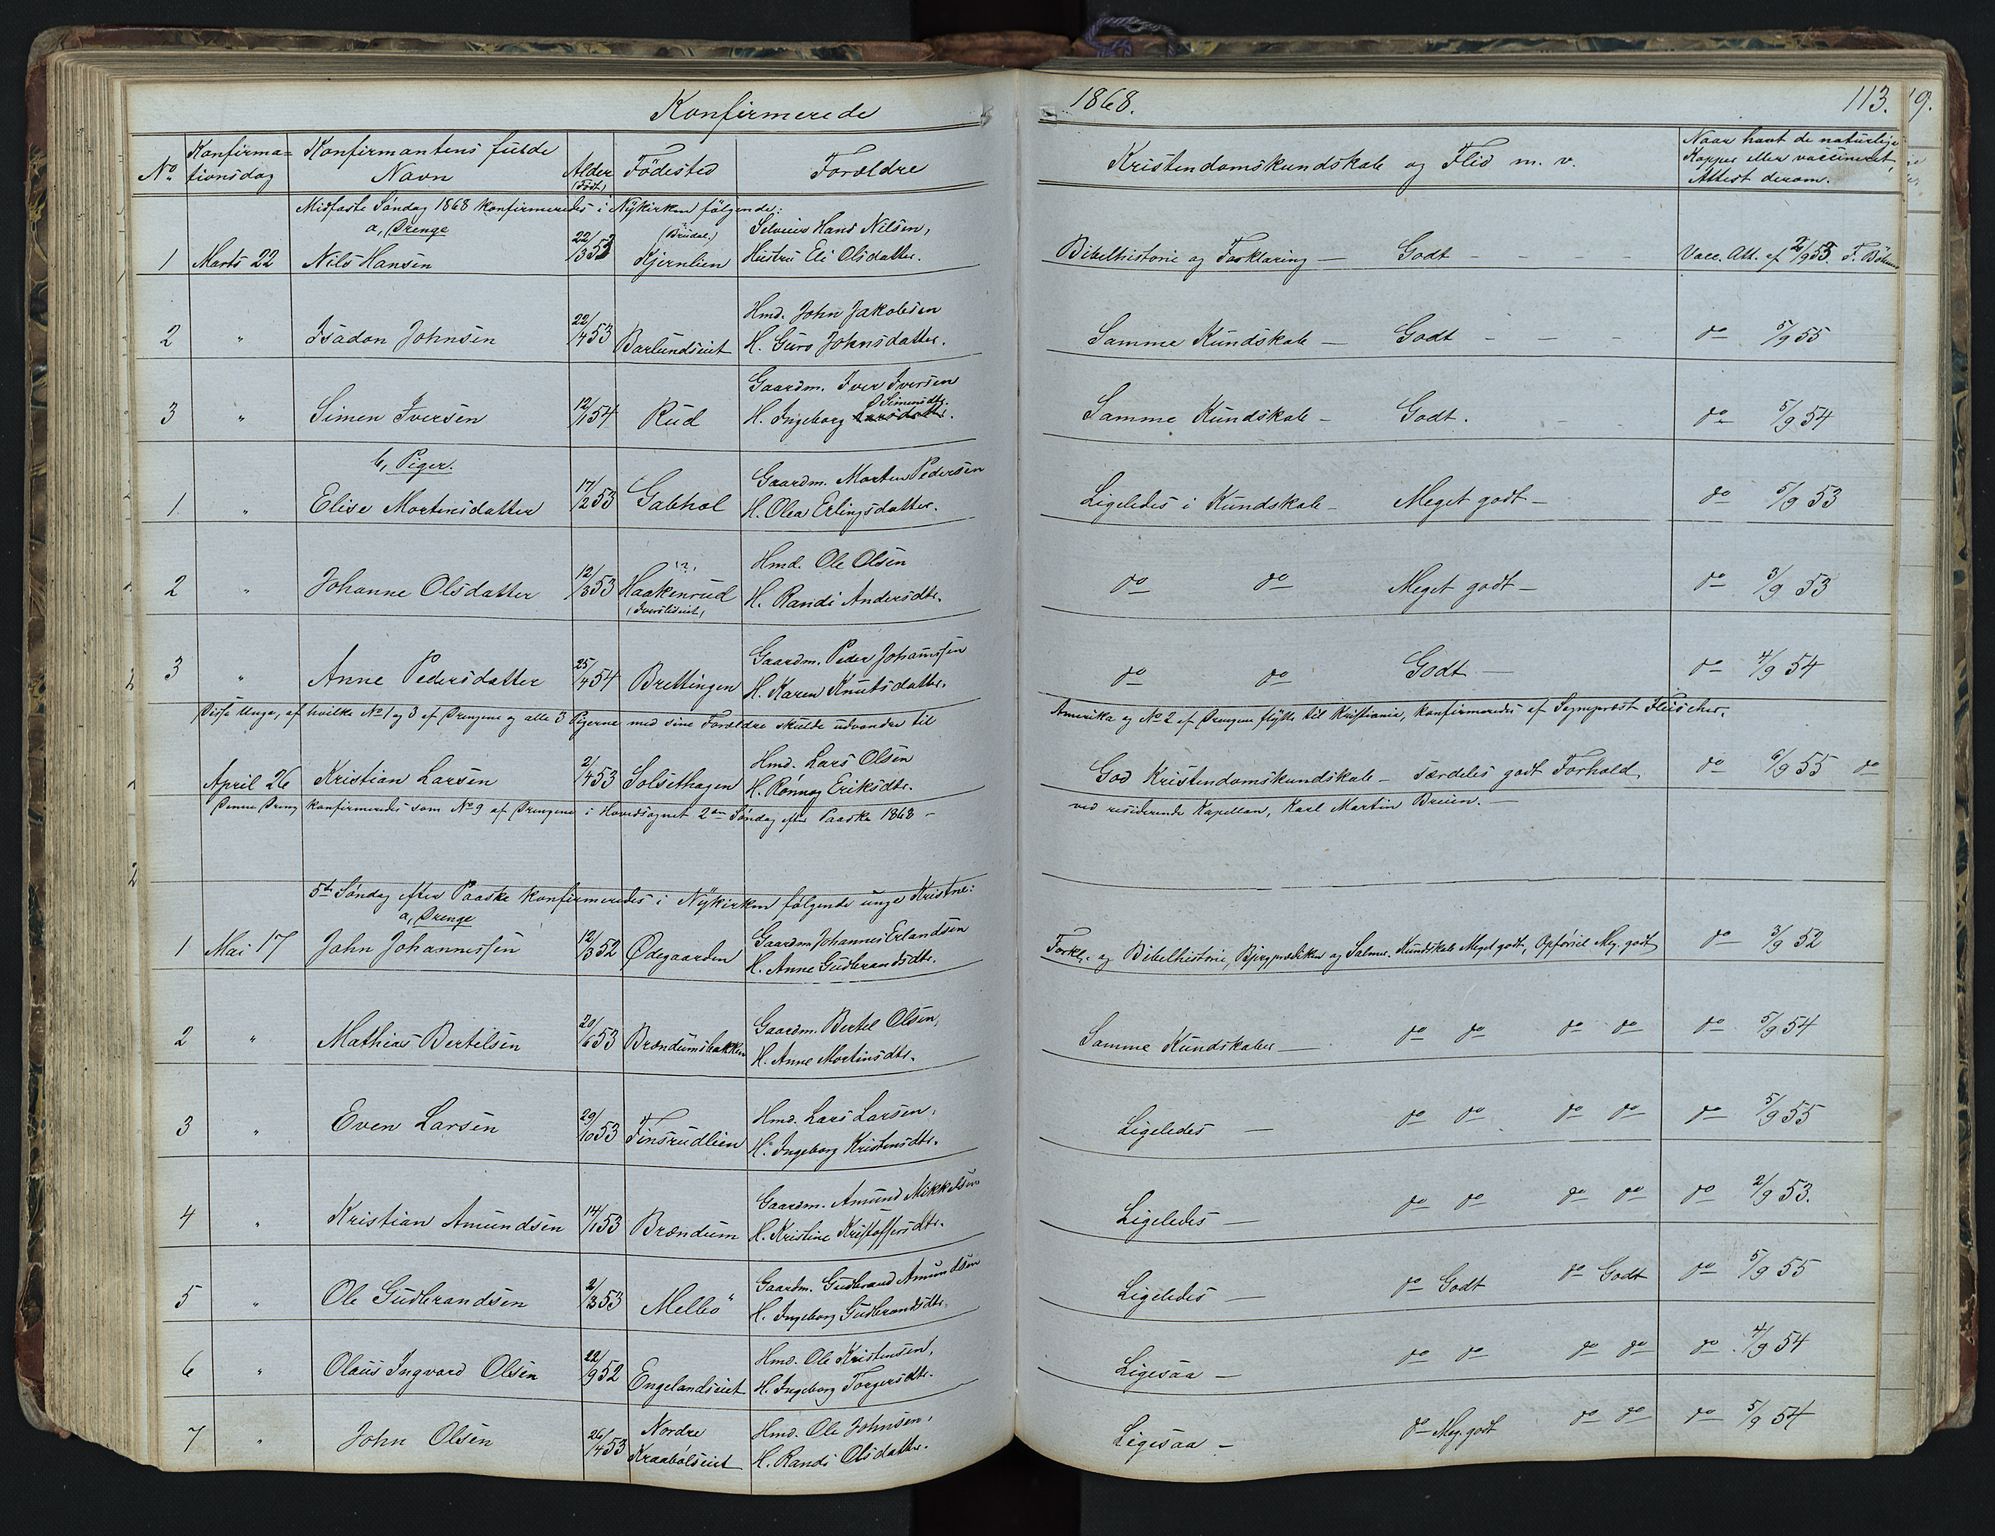 Konfirmerede 1868. 113.
No. Konfirmationsdag Konfirmantens fulde Navn Alder (Født) Fødested Forældre Kristendomskundskab og Flid m. v. Naar havt de naturlige Kopper eller vaccineret, Attest derom.
Midfaste Søndag 1868 konfirmeredes i Nykirken følgende:
a, Drenge (Brudal.) Selveier Hans Nilsen,
1 Marts 22 Nils Hansen 22/3 53 Kjernlien Hustru Eli Olsdatter. Bibelhistorie og Forklaring — Godt - - - - Vacc. Att. af /9 53. F.
Hmd. John Jakobsen
2 " Isadon Johnsen 22/4 53 Barlundseiet H. Guro Johnsdatter. Samme Kundskab — Godt - - - do 5/9 55
Gaardm. Iver Iversen
Simensdtr.
3 " Simen Iversen 12/1 54 Rud H. Ingeborg Samme Kundskab - Godt. - - do 5/9 54
b, Piger. Gaardm. Morten Pedersen
1 " Elise Mortensdatter 17/2 53 Gabhol H. Olea Erlingsdatter. Ligeledes i Kundskab - Meget godt - do 5/9 53
Hmd. Ole Olsen
2 " Johanne Olsdatter 12/3 53 Haakenrud H. Randi Andersdtr. do do Meget godt - do 3/9 53
(Iversliseiet)
Gaardm. Peder Johannssen
3 " Anne Pedersdatter 25/4 54 Brettingen H. Karen Knutsdatter. do do Godt - do 4/9 54
Disse Unge, af hvilke No 1 og 3 af Drengene og alle 3 Pigerne med sine Forældre skulde udvandre til Amerika og No 2 af Drengene flytte til Kristiania, konfirmeredes af Sogneprest Fleischer.
Hmd. Lars Olsen
April 26 Kristian Larsen 2/4 53 Solsethagen H. Rønnog Eriksdtr. God Kristendomskundskab - Særdeles godt Forhold, do 6/9 55 do
Denne Dreng konfirmeredes som No 9 af Drengene i Hovedsognet 2den Søndag efter Paaske 1868 - ved residerende Kapellan, Karl Martin Breien. -
5te Søndag efter Paaske konfirmeredes i Nykirken følgende unge Kristne:
a, Drenge Gaardm. Johannes Erlandsen
1 Mai 17 John Johannessen 12/3 52 Ødegaarden H. Anne Gudbrandsdtr. Forkl. og Bibelhistorie, Bjergprædiken og Salmer. Kundskab Meget godt, Opførsel Meg. godt do 3/9 52
Gaardm. Bertel Olsen,
2 " Mathias Bertelsen 20/6 53 Brændumsbakken H. Anne Mortensdtr. Samme Kundskaber - do do do do do 5/9 54
Hmd. Lars Larsen,
3 " Even Larsen 29/10 53 Finsrudlien H. Ingeborg Kristensdtr. Ligeledes - do do do do do 5/9 55
Gaardm. Amund Mikkelsen
4 " Kristian Amundsen 14/1 53 Brændum H. Kristine Kristoffersdtr. Ligeledes - do do do do do 2/9 53.
Gaardm. Gudbrand Amundsen
5 " Ole Gudbrandsen 2/3 53 Melbö H. Ingeborg Gudbrandsdtr. Ligeledes - do Godt do Godt do 5/9 55
Hmd. Ole Kristensen,
6 " Olaus Ingvard Olsen 22/9 52 Engelandseiet H. Ingeborg Torgersdtr. Ligesaa - do do do do do 4/9 54
Nordre Hmd. Ole Johnsen,
7 " John Olsen 26/4 53 Kraabölseiet H. Randi Olsdatter. Ligesaa - do Meg. godt do do do 5/9 54